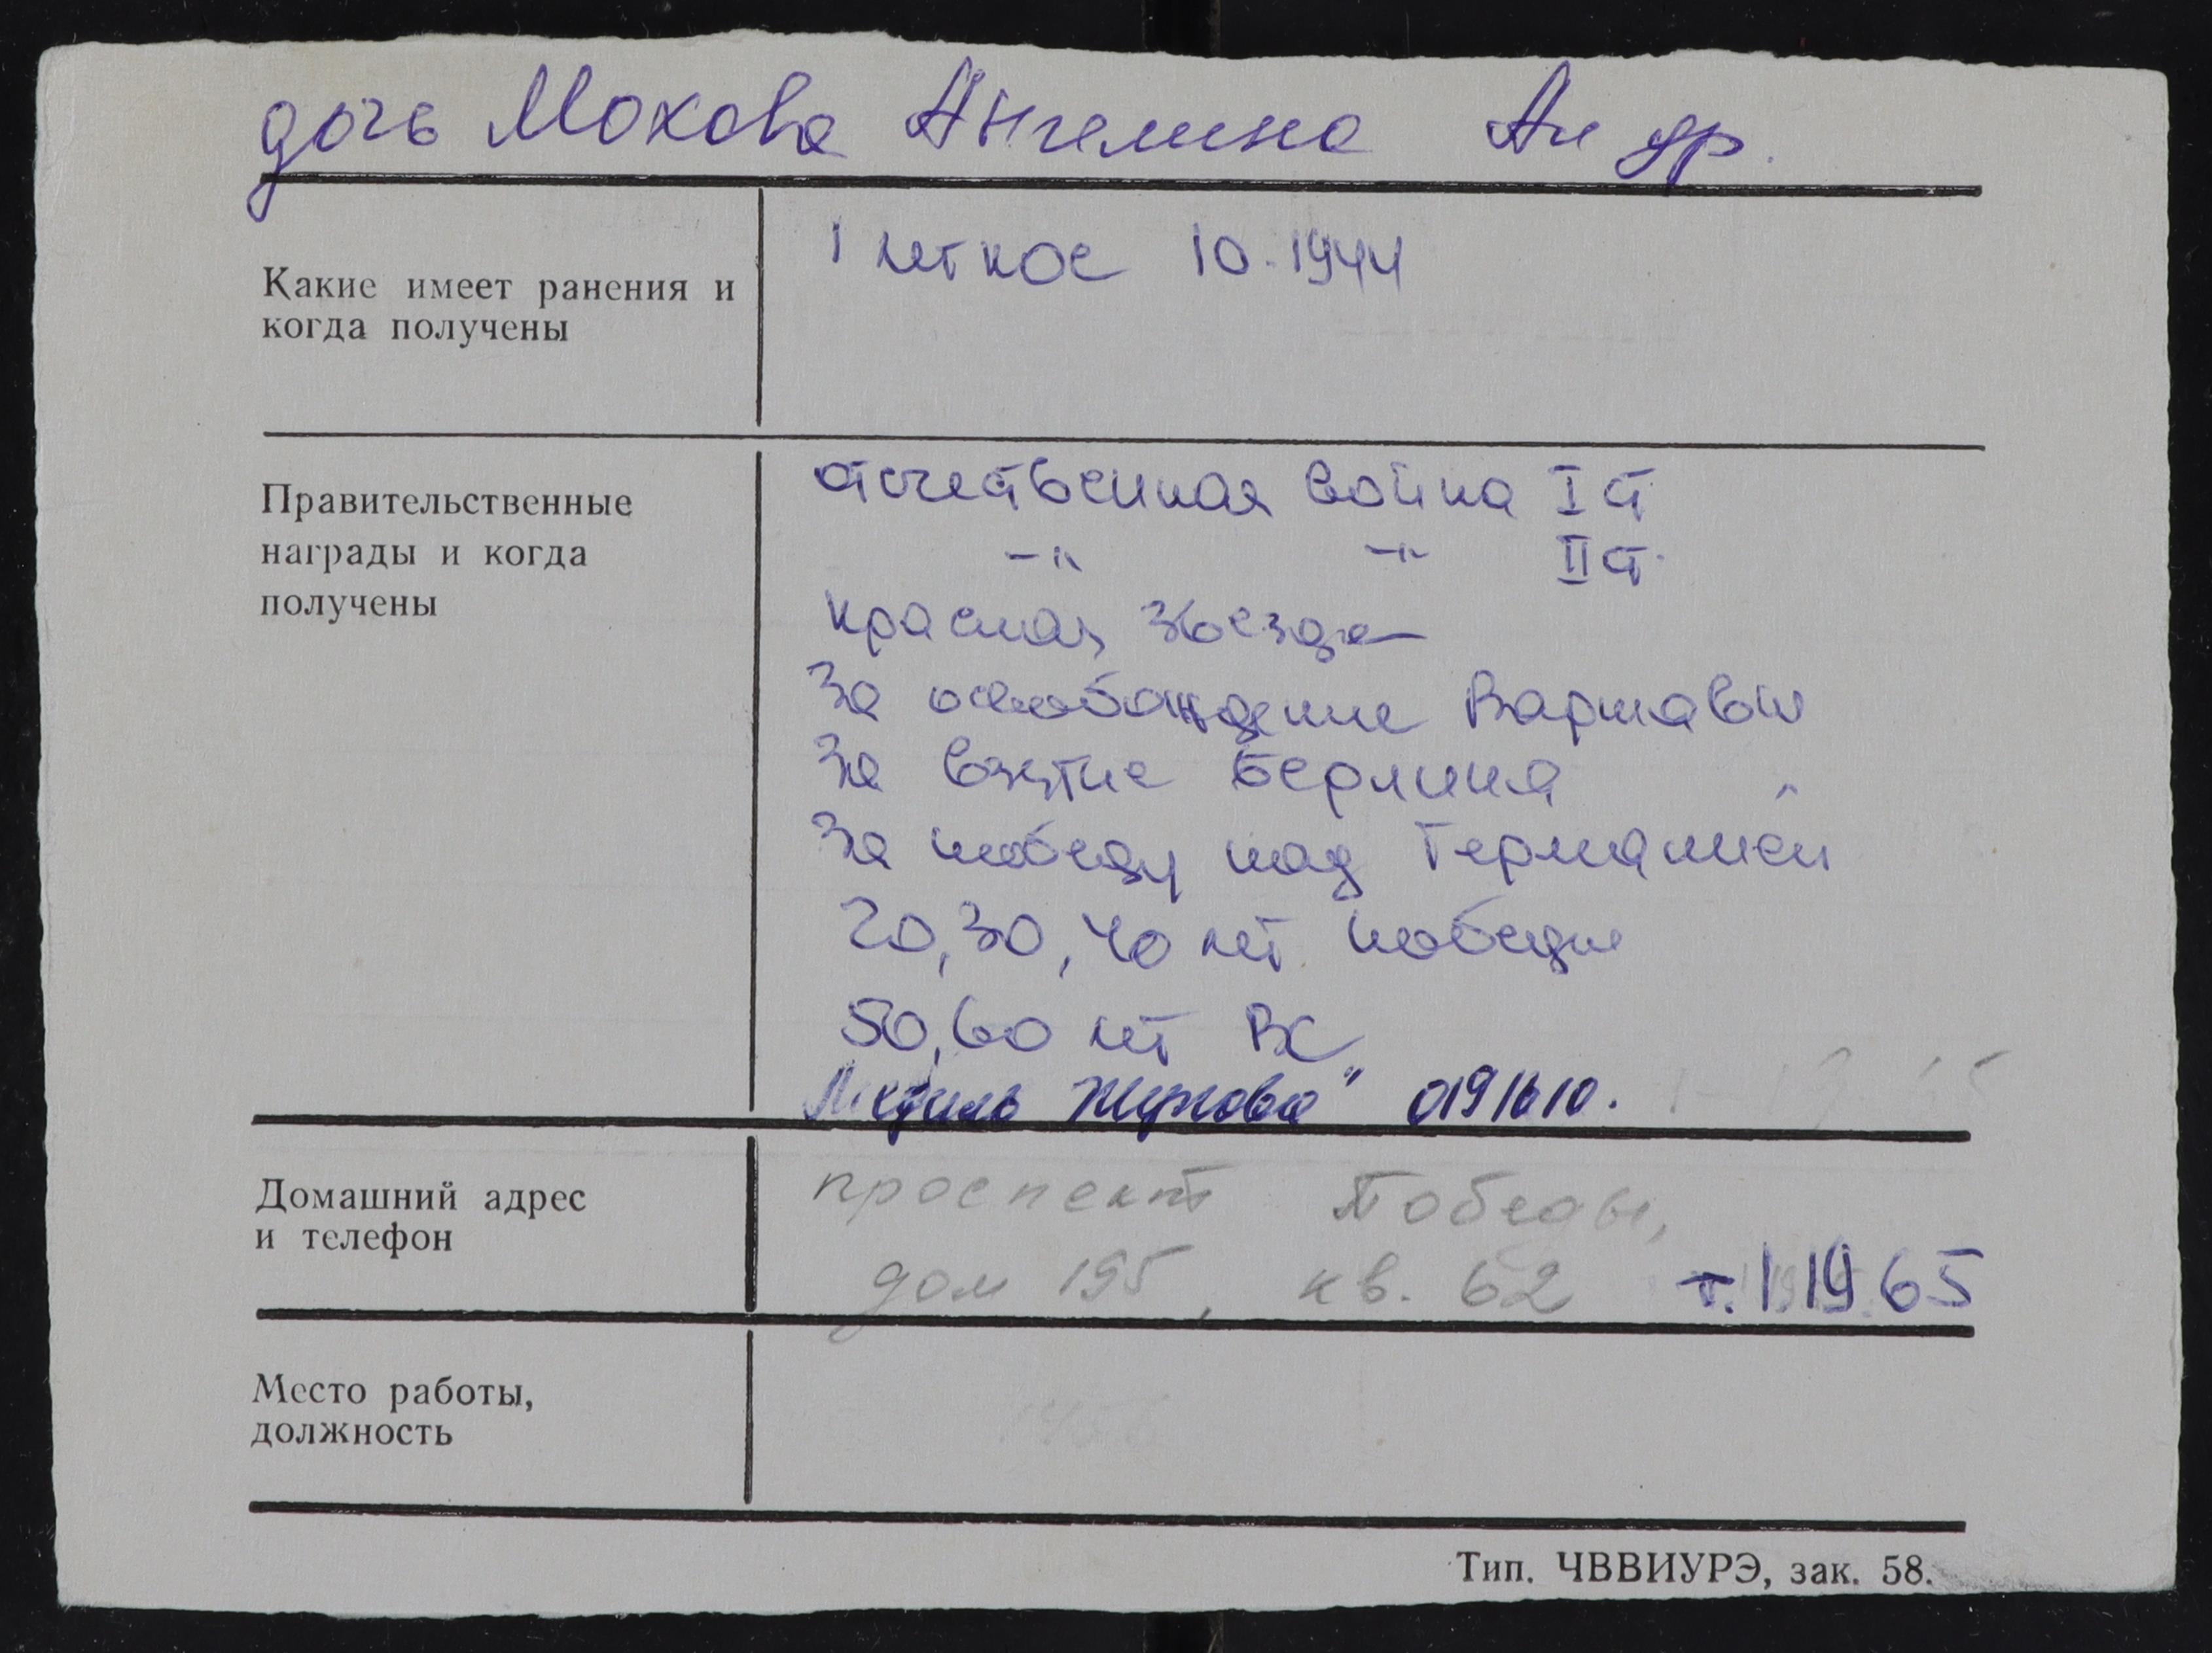 дочь Мохова Ангелина Андр.
Какие имеет ранения и
когда получены
1 легкое 10.1944
Правительственные
награды и когда
получены
Отечественная война I ст
-"- -"- II ст.
Красная звезда
За освобождение Варшавы
За взятие Берлина
За победу над Германией
20, 30, 40 лет победы
50, 60 лет ВС
Медаль Жукова" 0191610.
Домашний адрес
и телефон
проспект Победы,
дом 195, кв. 62 т. 11965
Место работы,
должность
Тип. ЧВВИУРЭ, зак. 58.